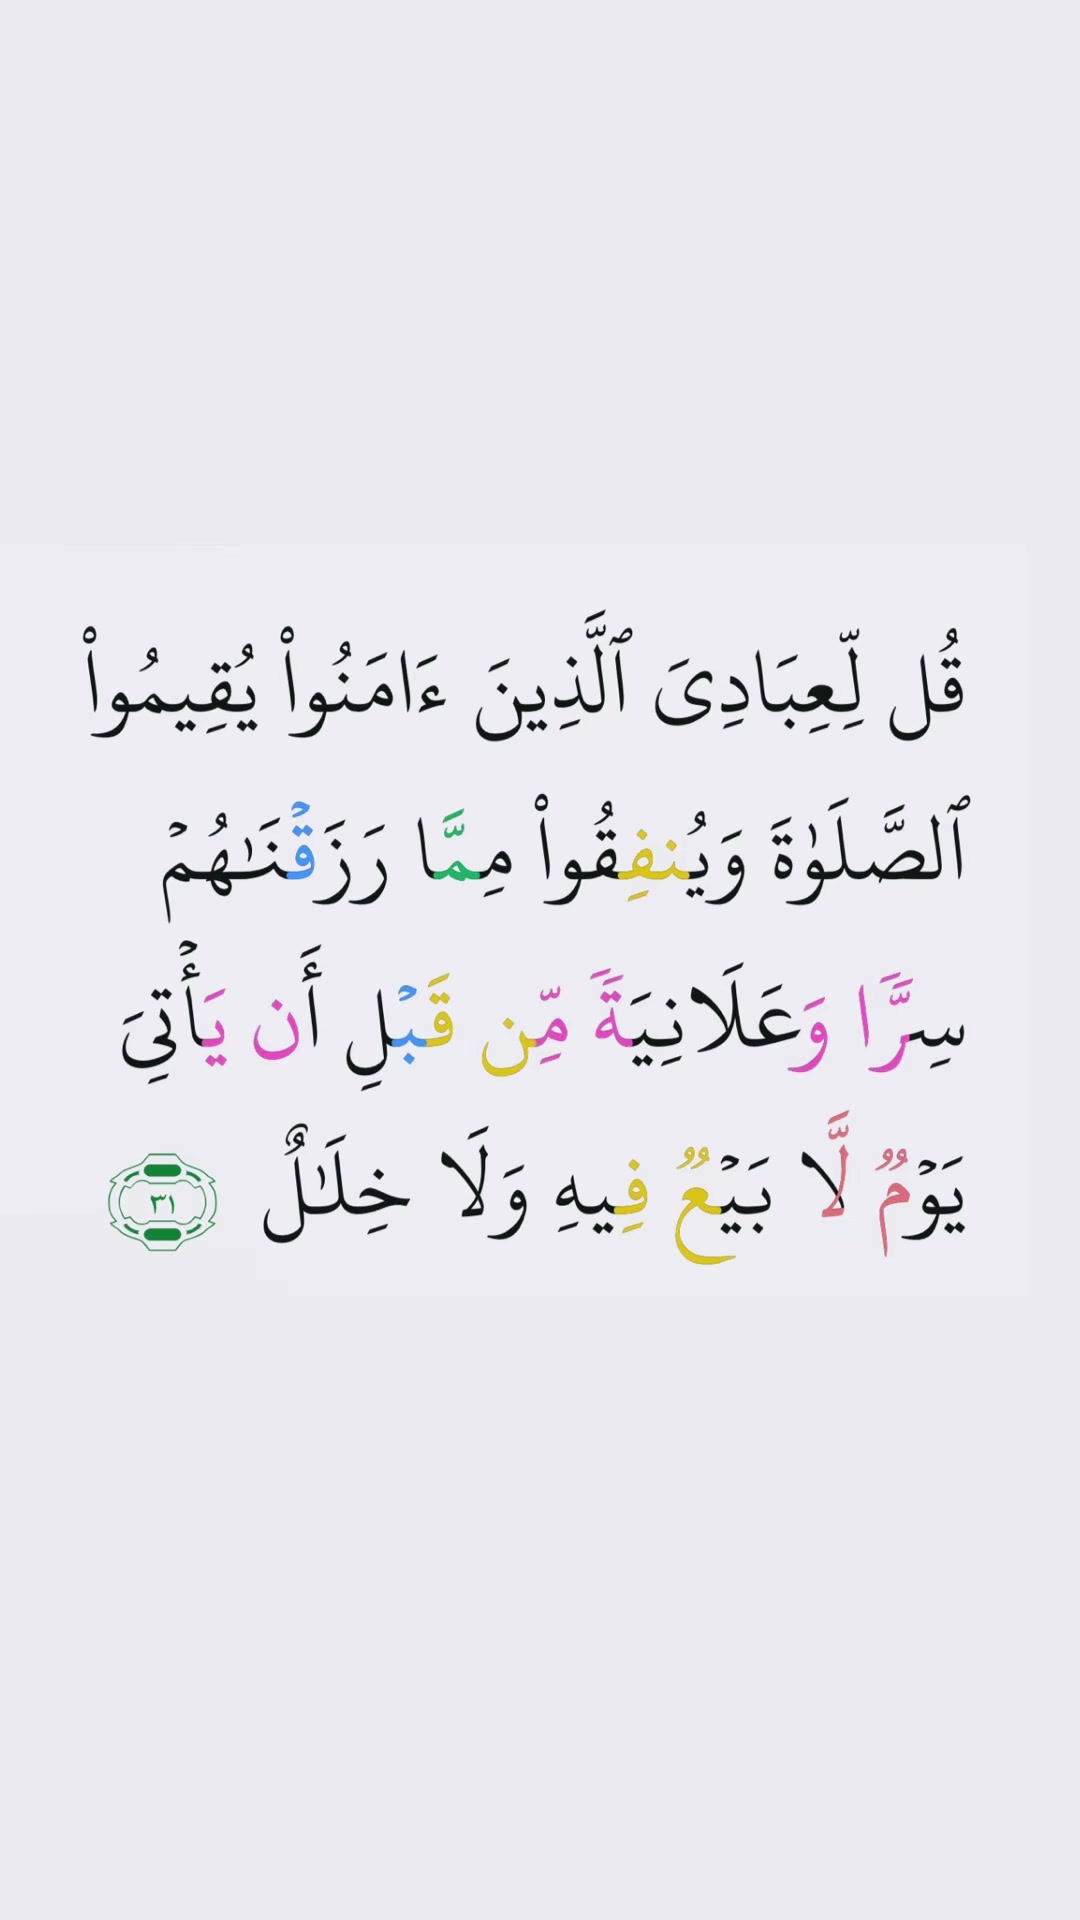 قُل لِّعِبَادِىَ ٱلَّذِينَ ءَامَنُوا۟ يُقِيمُوا۟
ٱلصَّلَوٰةَ وَيُنفِقُوا۟ مِمَّا رَزَقْنَـٰهُمْ
سِرًّا وَعَلَانِيَةً مِّن قَبْلِ أَن يَأْتِىَ
يَوْمٌ لَّا بَيْعٌ فِيهِ وَلَا خِلَـٰلٌ ٣١